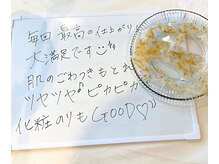 毎回最高の仕上がりで
大満足です
肌のごわつきもとれ
ツヤツヤ♪ピカピカ
化粧のりもGOOD♡